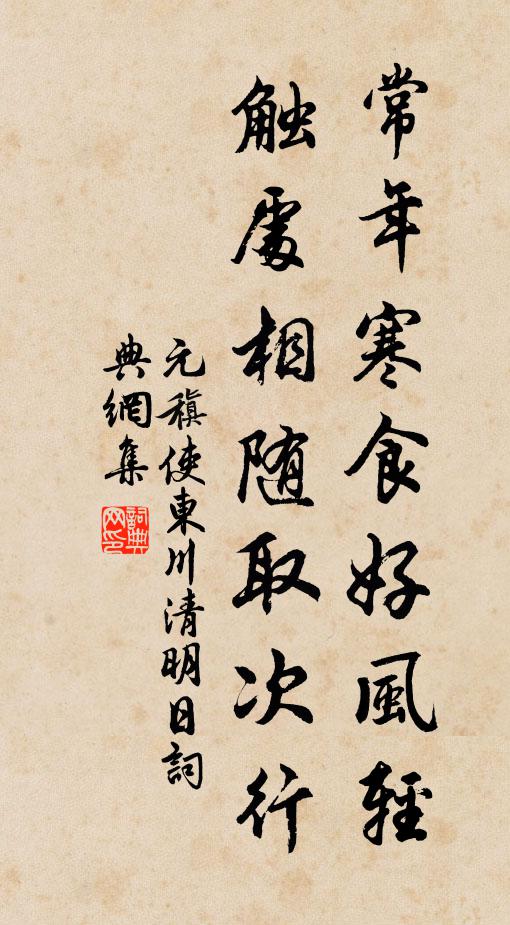 常年寒食好風輕
觸處相随取次行
元稹使東川清明日詞
典網集
詞典
网印